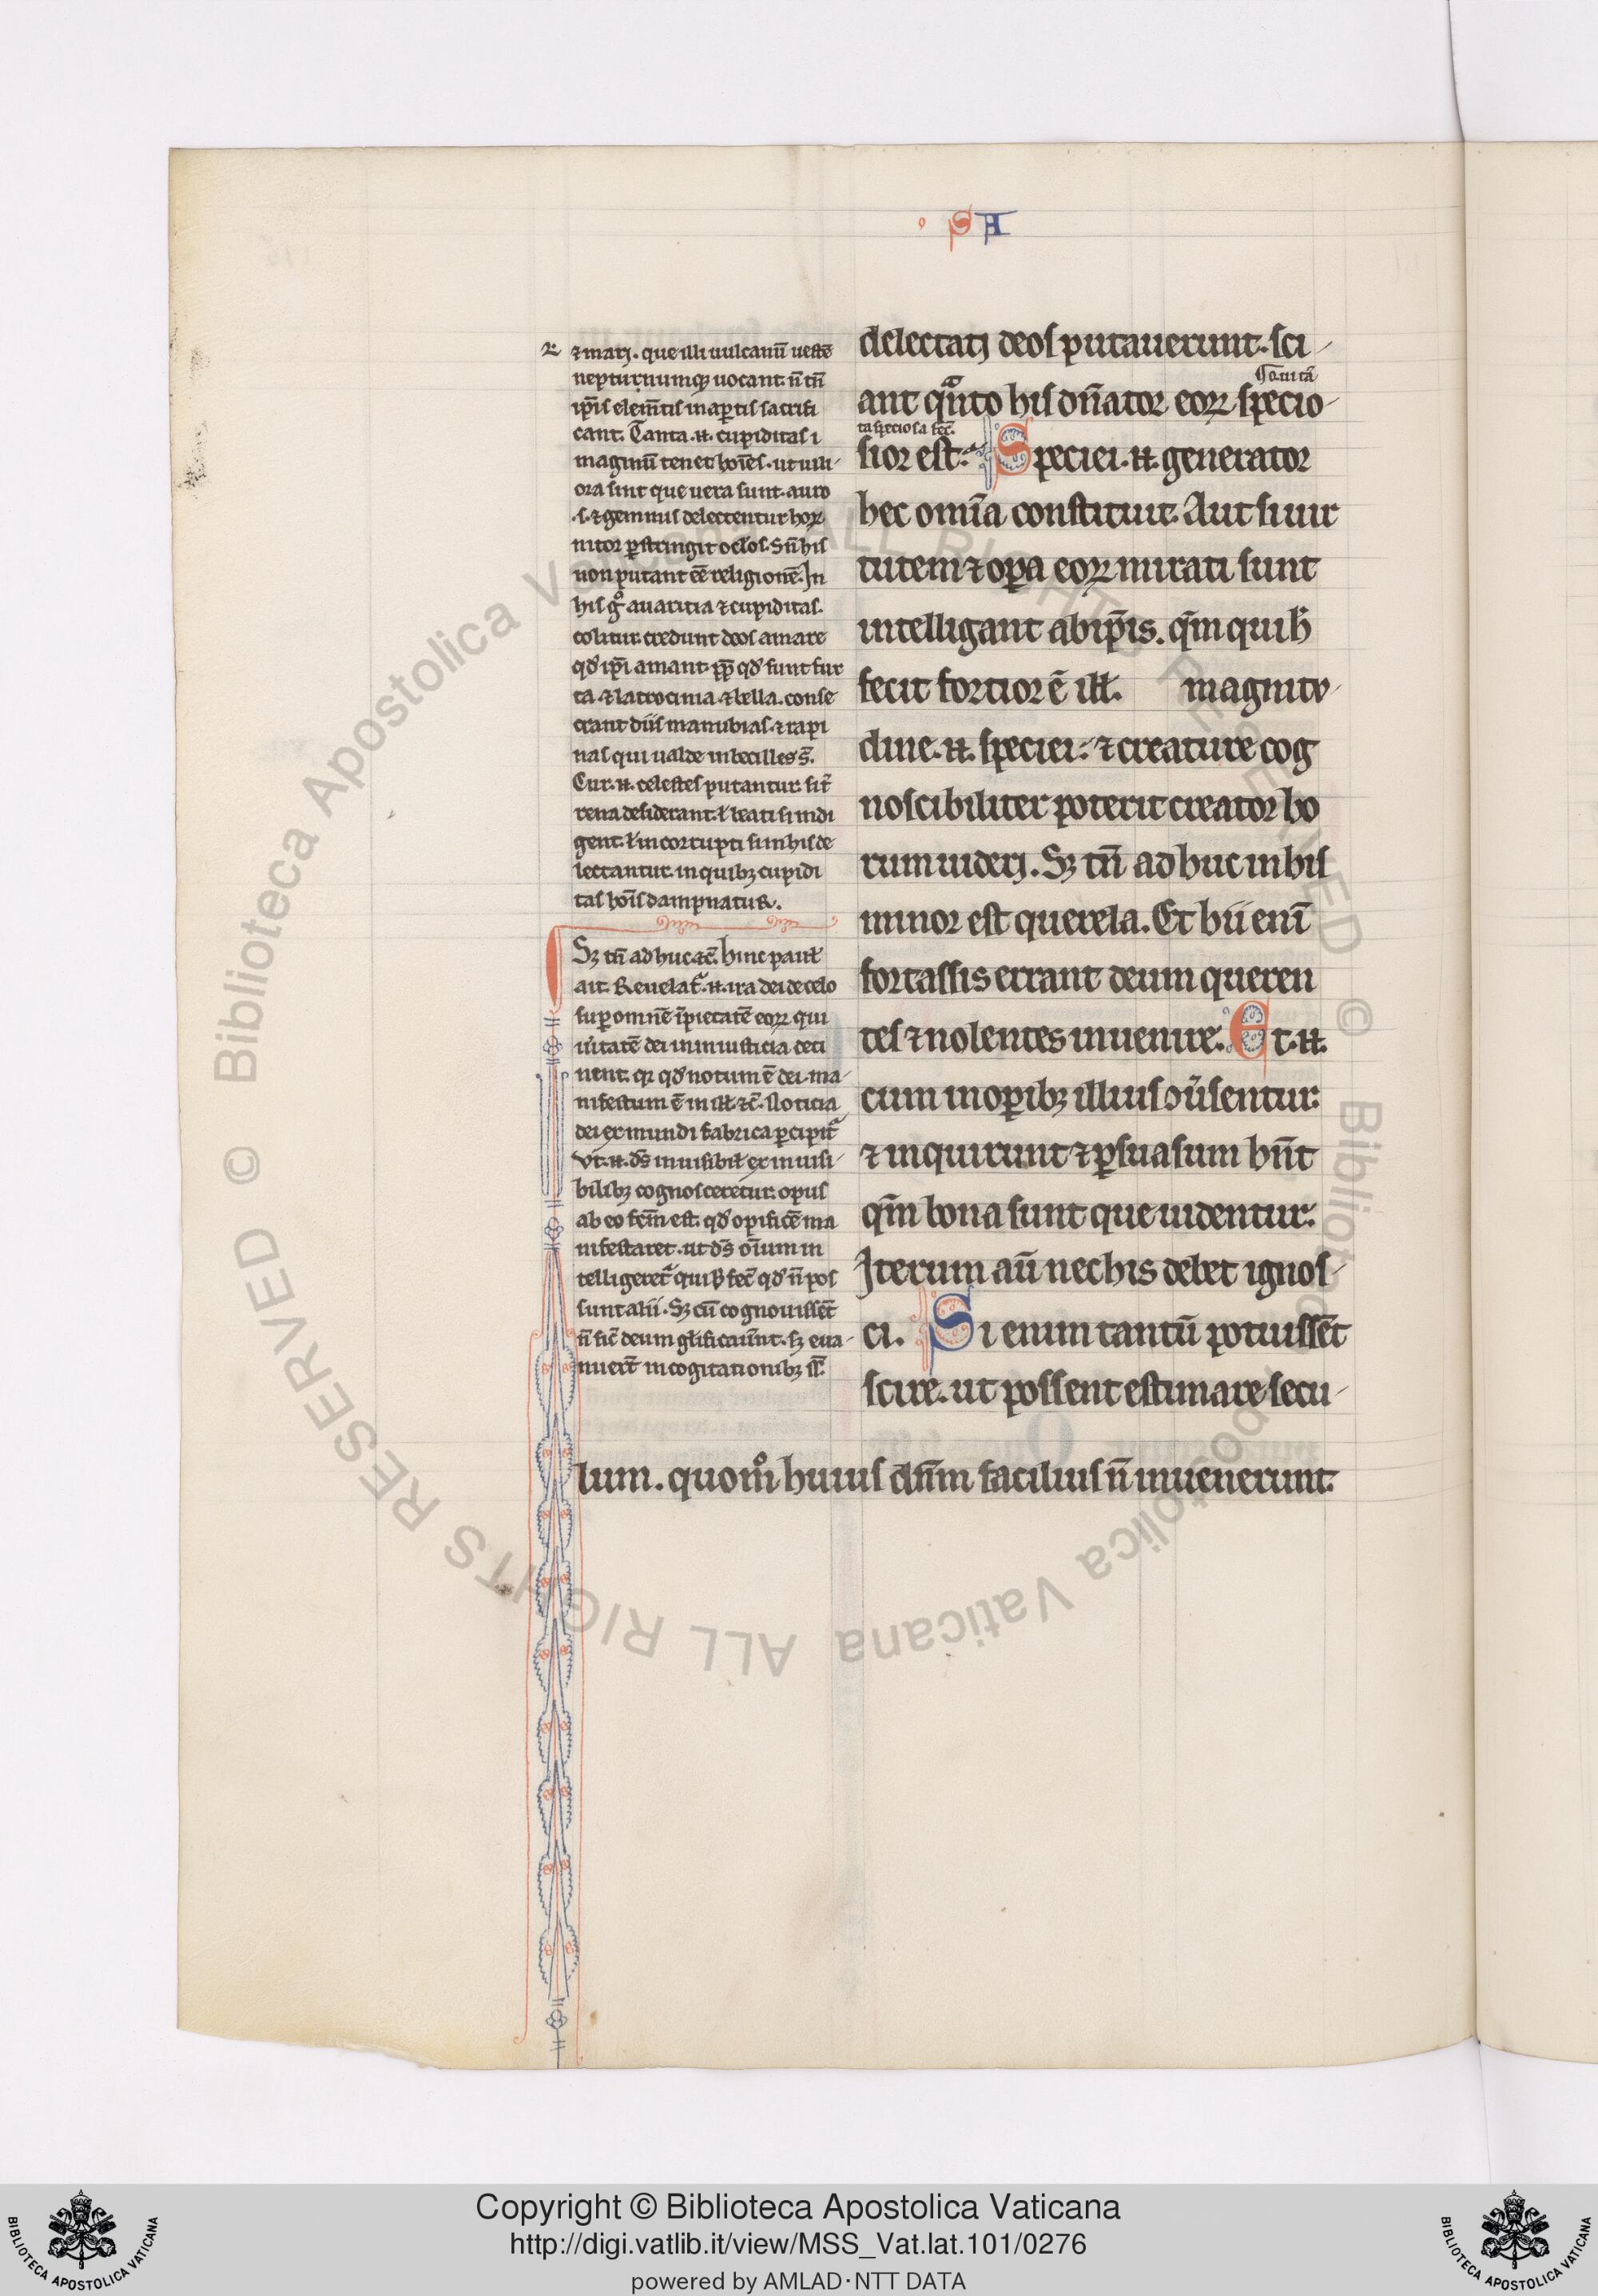 SA
⁊ marj. que illi uulcanū uestē
nepturnumq; uocant. n̄ tn̄
ip̄is elem̄tis inaptis sacrifi
cant. Tanta .n. cupiditas i
maginū tenet hoīes. ut uili-
ora sint que uera sunt. auro
.s. ⁊ gemmis delectentur hoꝝ
nitor p̄stringit oclos. Sn̄ his
non putant eē religionē. In
his gͦ auaritia ⁊ cupiditas.
colitur. credunt deos amare
qd̓ ip̄i amant. pp̄ qd̓ sunt fur
ta ⁊ latrocinia ⁊ bella. conse
crant diis manubias. ⁊ rapi
nas qui ualde inbecilles s̄.
Cur .n. celestes putantur. si t̓
rena desiderant. ł beati si indi
gent. ł incorrupti si in his de
lectantur. in quibꝫ cupidi
tas hoīs dampnatur.
Sꝫ tn̄ ad huc ⁊c̄. hinc paul̓
ait. Reuelat᷑ .n. ira dei de celo
suꝑ omnē īpietatē eoꝝ qui
ūitatē dei in iniusticia deti
nent. qr qd̓ notum ē dei. ma-
nifestum ē in ill̓ ⁊c̄. Noticia
dei ex mundi fabrica ꝑcipit᷑
Vt .n. ds̄ inuisibil̓ ex inuisi-
bilibꝫ cognosceretur. opus
ab eo fc̄m est. qd̓ opificē ma
nifestaret. ut ds̄ oīum in
telligeret᷑ qui fec̄ qd̓ n̄ pos
sunt alii. Sꝫ cū cognouissēt
n̄ sic̄ deum gl̓ificauērnt. sꝫ eua-
nuer̄t in cogitationibꝫ
delectatj deos putauerunt. sci-
ant qͣnto his dn̄ator eoꝝ specio-
ta speciosa fec̄.
sior est. Speciei .n. generator
hec omīa constituit. Aut si uir
tutem ⁊ oꝑa eoꝝ mirati sunt
intelligant ab ip̄is. qm̄ qui h̓
fecit fortior ē ill̓. magnitu-
dine .n. speciei. ⁊ creature cog
noscibiliter poterit creator ho
rum uiderj. Sꝫ tn̄ ad huc in his
minor est querela. Et hii enī
fortassis errant deum queren
tes ⁊ nolentes inuenire. Et .n.
cum in oꝑibꝫ illius ɔūsentur.
⁊ inquirunt ⁊ ꝑsuasum hn̄t
qm̄ bona sunt que uidentur.
Iterum aū nec his debet ignos-
ci. Si enim tantū potuissēt
scire. ut possent estimare secu-
lum. quom̊ huius dn̄m facilius n̄ inuenerunt.
© Biblioteca Apostolica Vaticana ALL RIGHTS RESERVED © Biblioteca Apostolica Vaticana ALL RIGHTS RESERVED
Copyright © Biblioteca Apostolica Vaticana
http://digi.vatlib.it/view/MSS_Vat.lat.101/0276
powered by AMLAD·NTT DATA
BIBLIOTECA APOSTOLICA VATICANA
BIBLIOTECA APOSTOLICA VATICANA